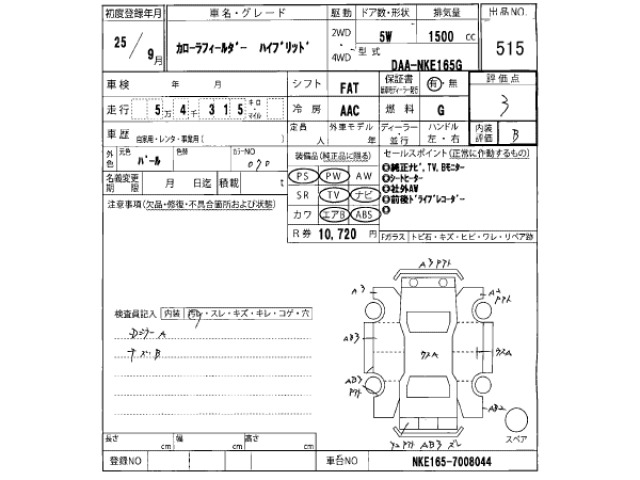 初度登録年月 車名・グレード 駆動 ドア数・形状 排気量 出品NO.
25/9月 カローラフィールダー ハイブリッド 2WD・4WD 5W 1500 cc 515
型式 DAA-NKE165G
車検 年 月 シフト FAT 保証書 有・無 評価点 3
走行 5万4千315 キロ・マイル 冷房 AAC 燃料 G
車歴 自家用・レンタ・事業用( ) 定員 人 外車モデル 年 ディーラー・並行 ハンドル 左・右 内装評価 B
外色 元色 パール 色替 カラーNO 070
装備品(純正品に限る) セールスポイント(正常に作動するもの)
名義変更期限 月 日迄 積載 t
PS PW AW
SR TV ナビ
カワ エアB ABS
R券 10,720 円
●純正ナビ、TV、Bモニター
●シートヒーター
●社外AW
●前後ドライブレコーダー
●
注意事項(欠品・修復・不具合箇所および状態)
Fガラス トビ石・キズ・ヒビ・ワレ・リペア跡
検査員記入 内装 汚レ・スレ・キズ・キレ・コゲ・穴
A3
AB3
AB3
AB2
AB3
スペア
長さ cm 幅 cm 高さ cm
登録NO 車台NO NKE165-7008044